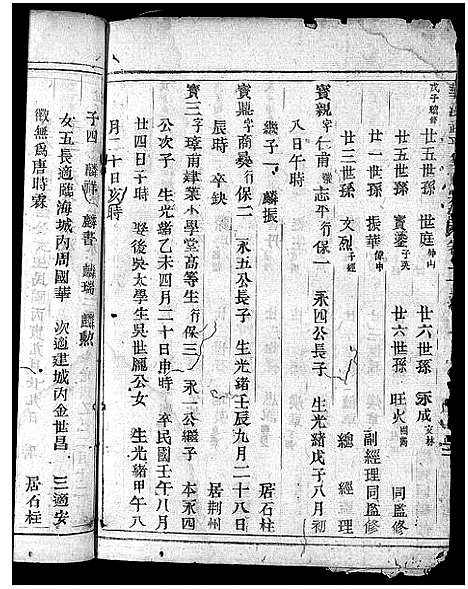 戊子續修
廿五世孫 世庭 仲山 廿六世孫 永成 安林
廿五世孫 寶鎏 子英 廿六世孫 旺火 同監修
廿四世孫 振華 偉中 副經理同監修
廿三世孫 文烈 子經 總經理
寶親 字仁甫 號志平 行保一 永四公長子 生光緒戊子八月初
八日午時 居石柱
寶鼎 字商彝 行保二 永五公長子 生光緒壬辰九月二十八日
辰時 卒缺 居荆州
繼子一 麟振
寶三 字璋甫 肄業小學堂高等生 行保三 永一公繼子 本永四
公次子 生光緒乙未四月二十日申時 卒民國壬午八月
廿四日子時 娶後吳太學生吳世麗公女 生光緒甲午八
月二十日亥時
子四 麟祥 麟書 麟瑞 麟勲
女五長適臨海城內周國華 次適建城內金世昌 三適安
徽無爲唐時霖 居石柱